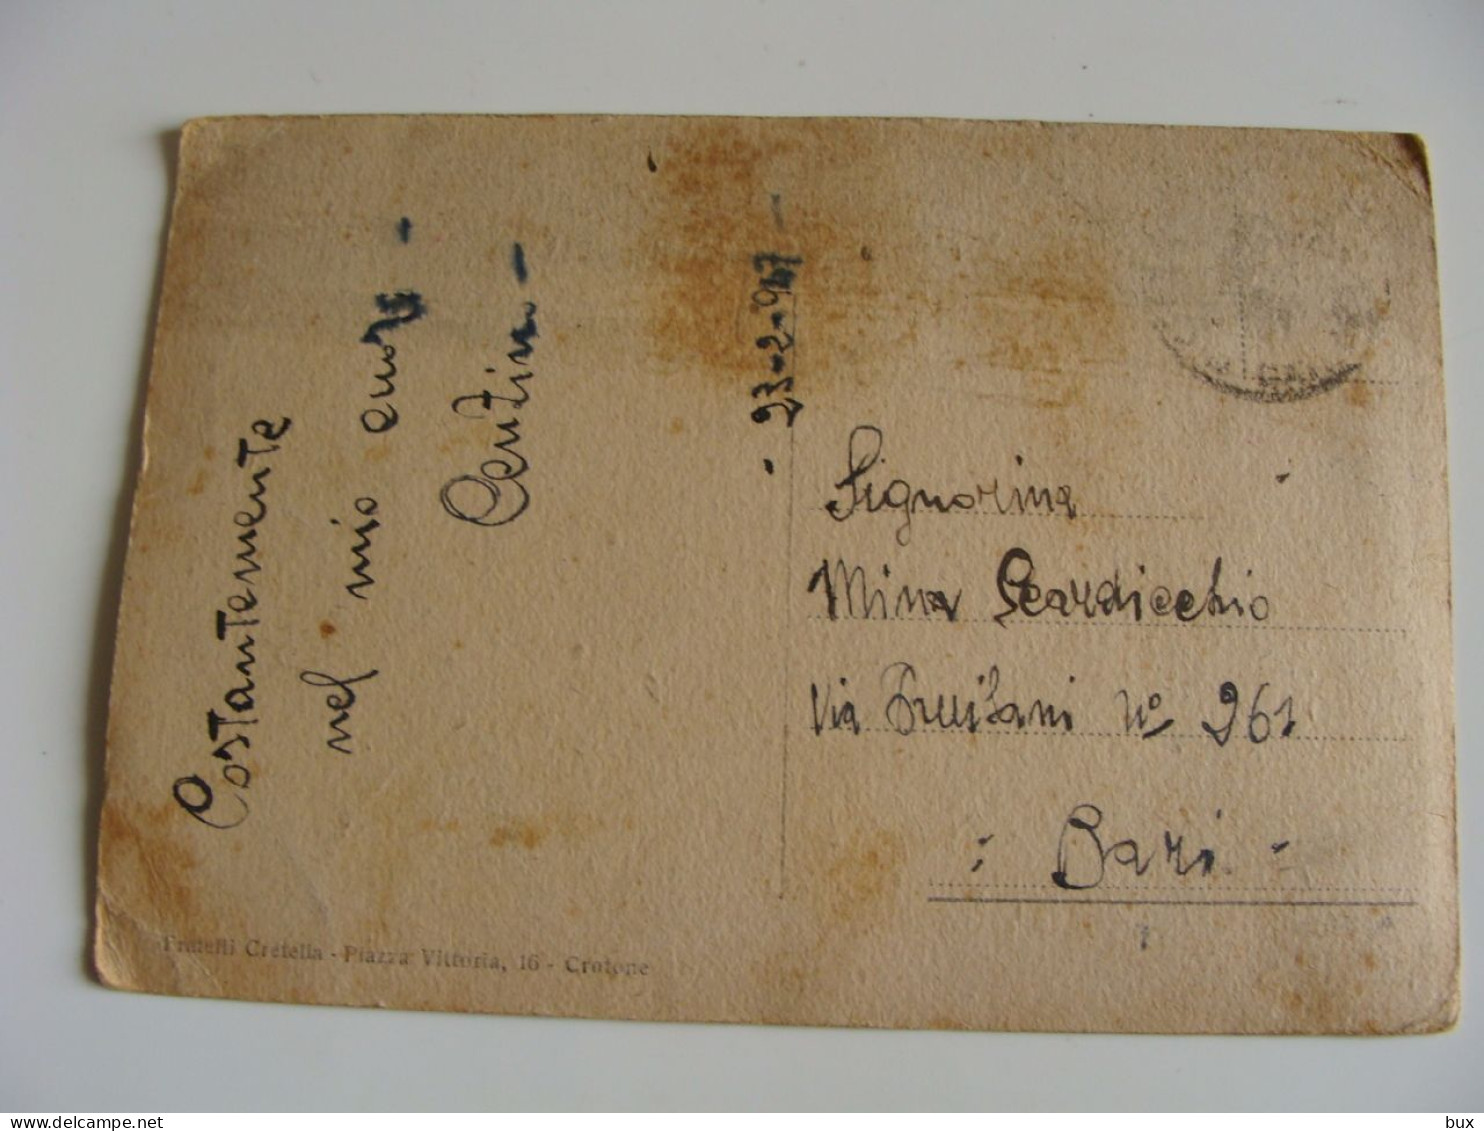 Costantemente
nel mio cuore -
Centino -
23-2-947 -
Signorina
Mina Scardicchio
Via N° 261
: Bari -
Fratelli Cretella - Piazza Vittoria, 16 - Crotone
bux